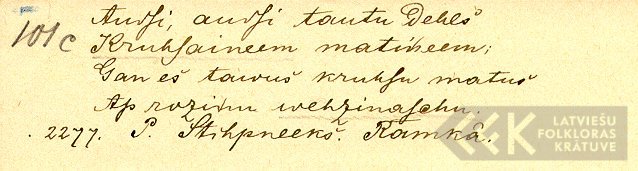 101c
Audsi, audsi tautu Dehls
Kruhsaineem matineem;
Gan es tawus kruhsu matus
Ap roziņu wehzinaschu.
2277. P. Stihpneeks. Ramkâ.
LATVIEŠU
FOLKLORAS
KRĀTUVE